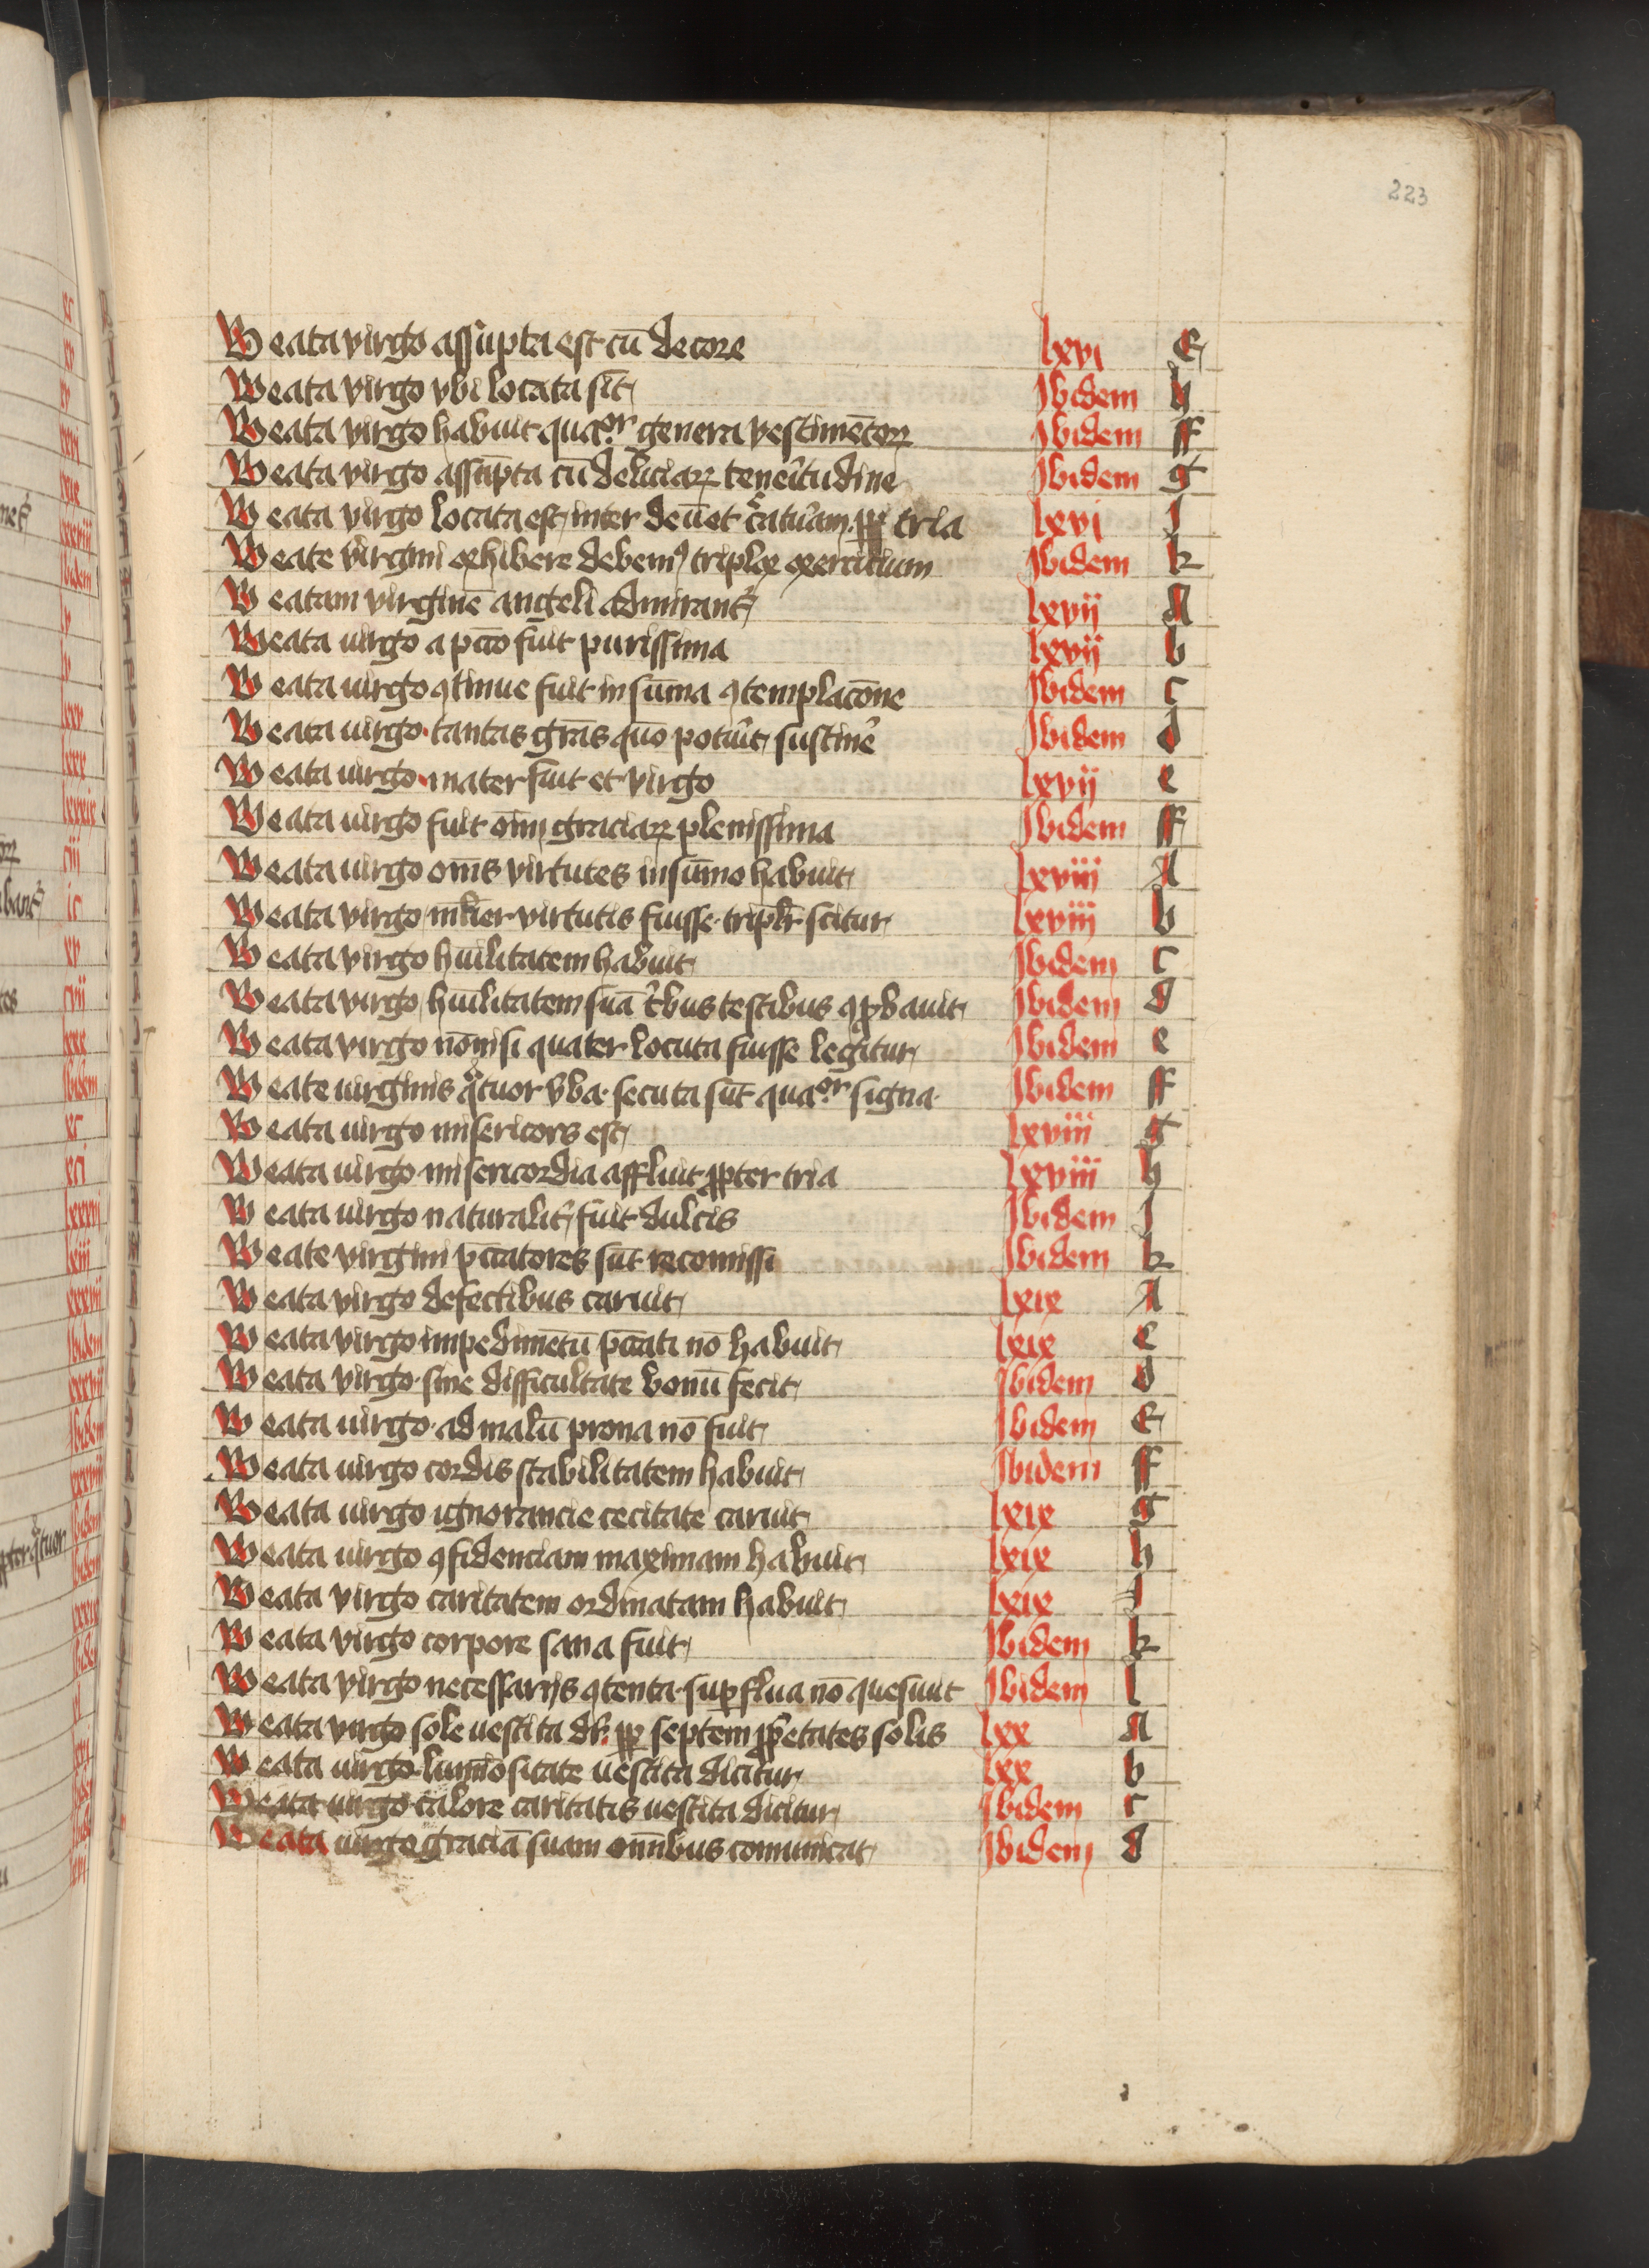 223
Beata virgo assūpta est cū decore lxvi E
Beata virgo vbi locata sit Ibidem h
Beata virgo habuit quaor genera vestimētoꝝ Ibidem ff
Beata virgo assūpta cū deliciaꝝ teneritudine Ibidem g
Beata virgo locata est inter deū et creaturam ꝓpter tria lxvi I
Beate virgini exhibere debemꝰ triplex exercicium Ibidem k
Beatam virginē angeli admirant᷑ lxvij A
Beata uirgo a pctō fuit purissima lxvij b
Beata uirgo ꝯtinue fuit in sūma ꝯtemplacōne Ibidem c
Beata uirgo tantas grās quō potuit sustinē Ibidem d
Beata uirgo mater fuit et virgo lxvij e
Beata uirgo fuit oīm graciaꝝ plenissima Ibidem ff
Beata uirgo om̄s virtutes in sūmo habuit lxviii A
Beata virgo mlier virtutis fuisse triplr scitur lxviii b
Beata virgo hūilitatem habuit Ibidem c
Beata virgo hūilitatem suā tbus testibus ꝯꝓbauit Ibidem d
Beata virgo nō nisi quater locuta fuisse legitur Ibidem e
Beate uirginis qͣtuor vba secuta sūt quaor signa Ibidem ff
Beata uirgo misericors est lxviii g
Beata uirgo misericordia affluit ꝓpter tria lxviii h
Beata uirgo naturalit fuit dulcis Ibidem I
Beate virgini pcc̄atores sūt recomissi Ibidem k
Beata virgo defectibus caruit lxix A
Beata virgo impedimētū pcc̄ati nō habuit lxix c
Beata virgo sine difficultate bonū fecit Ibidem d
Beata uirgo ad malū prona nō fuit Ibidem E
Beata uirgo cordis stabilitatem habuit Ibidem ff
Beata uirgo ignorancie cecitate caruit lxix g
Beata uirgo ꝯfidenciam maximam habuit lxix h
Beata virgo caritatem ordinatam habuit lxix I
Beata virgo corpore sana fuit Ibidem k
Beata virgo necessarijs ꝯtenta supflua nō quesiuit Ibidem l
Beata virgo sole uestita dr ꝓpter septem ꝓpetates solis lxx A
Beata uirgo luminositate uestita dicitur lxx b
Beata uirgo calore caritatis uestita dicitur Ibidem c
Beata uirgo graciā suam omībus comunicat Ibidem d